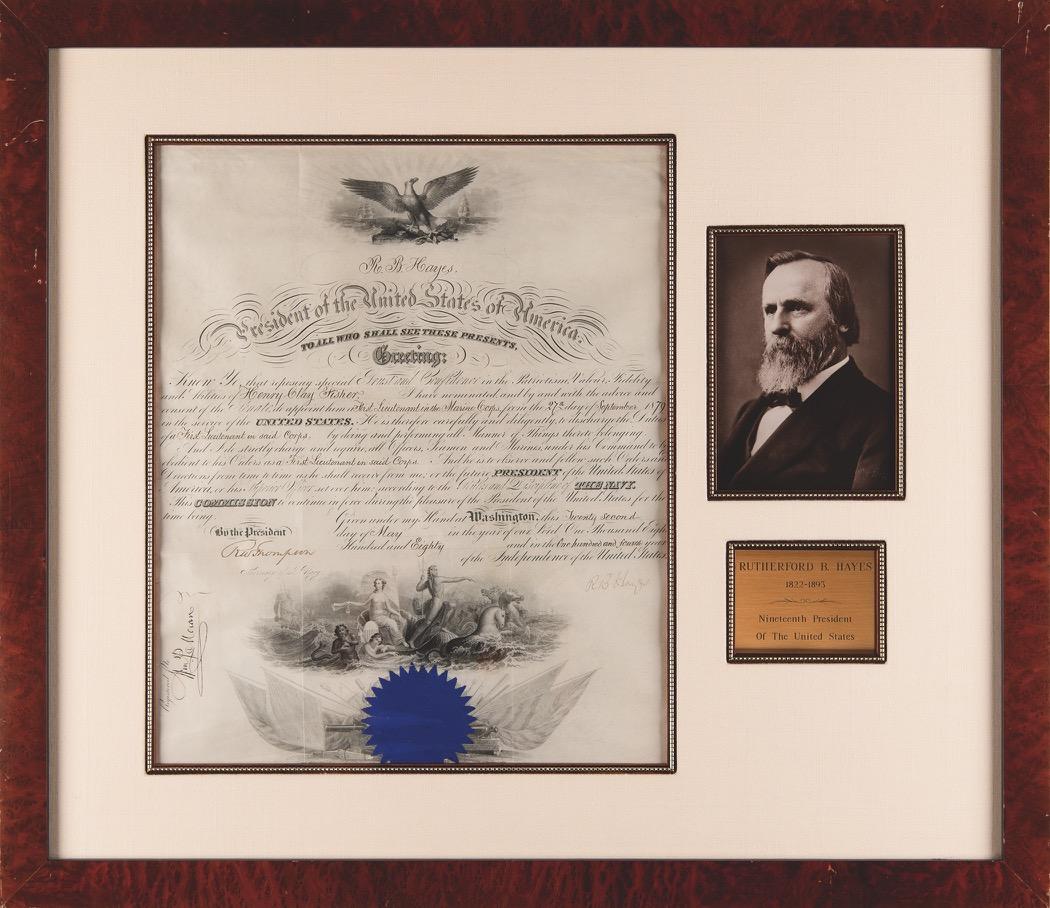 R. B. Hayes.
President of the United States of America.
TO ALL WHO SHALL SEE THESE PRESENTS,
Greeting:
Know Ye, that reposing special Trust and Confidence in the Patriotism, Valour, Fidelity
and Abilities of Henry Clay Fisher I have nominated, and by and with the advice and
consent of the Senate, do appoint him a First Lieutenant in the Marine Corps, from the 27th day of September 1879
in the service of the UNITED STATES. He is therefore carefully and diligently, to discharge the Duties
of a First Lieutenant in said Corps, by doing and performing all Manner of Things thereto belonging.
And I do strictly charge and require, all Officers, Seamen and Marines, under his Command to be
obedient to his Orders as a First Lieutenant in said Corps. And he is to observe and follow such Orders and
Directions from time to time as he shall receive from me, or the future PRESIDENT, of the United States of
America, or his set over him, according to the Rules and Discipline of THE NAVY.
This COMMISSION to continue in force during the pleasure of the President of the United States for the
time being.
Given under my Hand at Washington, this Twenty second
By the President
day of May in the year of our Lord One Thousand Eight
Hundred and Eighty and in the One hundred and fourth year
of the Independence of the United States
R W Thompson
Secretary of the Navy
R B Hayes
Registered
RUTHERFORD B. HAYES
1822-1893
Nineteenth President
Of The United States